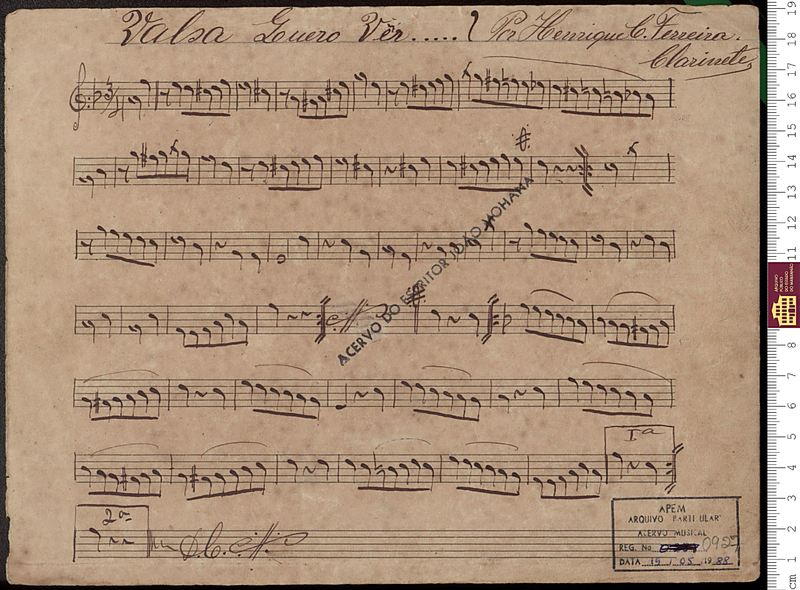 Valsa Quero Ver.....? Por Henrique C. Ferreira.
Clarinete
ACERVO DO ESCRITOR JOÃO MOHANA
Iª
2ª
D.C.
APEM
ARQUIVO PARTICULAR
ACERVO MUSICAL
REG. No 0927
DATA 19 / 05 / 19 88
ARQUIVO
PÚBLICO
DO ESTADO
DO MARANHÃO
cm 1 2 3 4 5 6 7 8 11 12 13 14 15 16 17 18 19